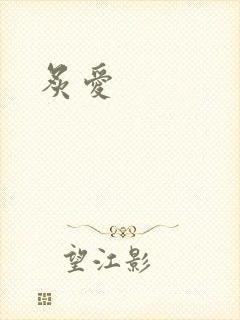 炙愛
望江影